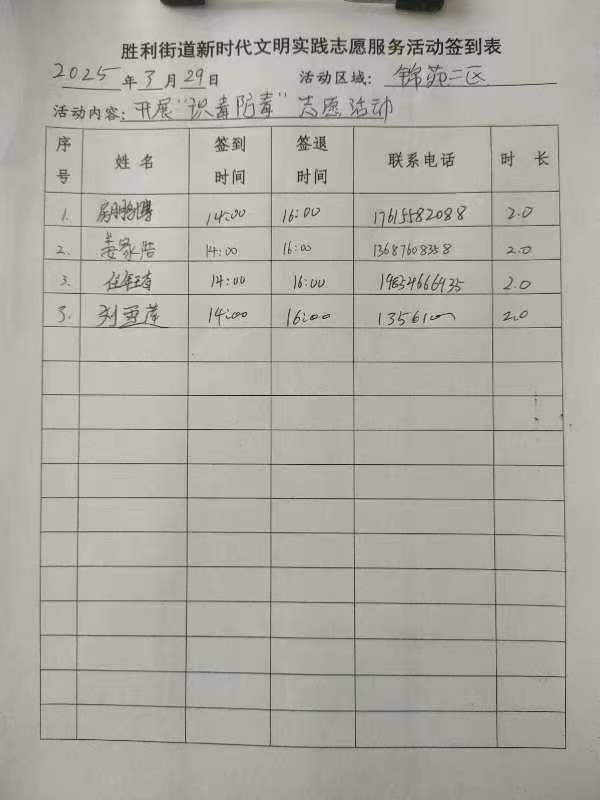 胜利街道新时代文明实践志愿服务活动签到表
2025年3月29日 活动区域：锦苑二区
活动内容：开展"识毒防毒"志愿活动
序号 姓名 签到时间 签退时间 联系电话 时长
1. 14:00 16:00 17615582088 2.0
2. 姜家浩 14:00 16:00 13687608358 2.0
3. 14:00 16:00 19854666935 2.0
3. 刘亚莲 14:00 16:00 13561 2.0